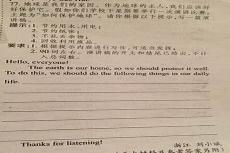 77. 地球是我们的家园。作为地球的主人,我们应该好
好保护它。假如你们学校下星期要举行一次演讲比赛,
主题为"如何保护地球"。请你根据以下提示,写一篇演
讲稿。
提示:1. 节约用水、用电;
2. 节约纸张;
3. 不乱丢杂物;
4. 回收利用废品。
要求:1. 根据提示内容进行写作,可适当发挥;
2. 90词左右。演讲稿的开头和结尾已给出,不计
入总词数。
Hello, everyone!
The earth is our home, so we should protect it well.
To do this, we should do the following things in our daily
life.
Thanks for listening!
浙江 刘小斌